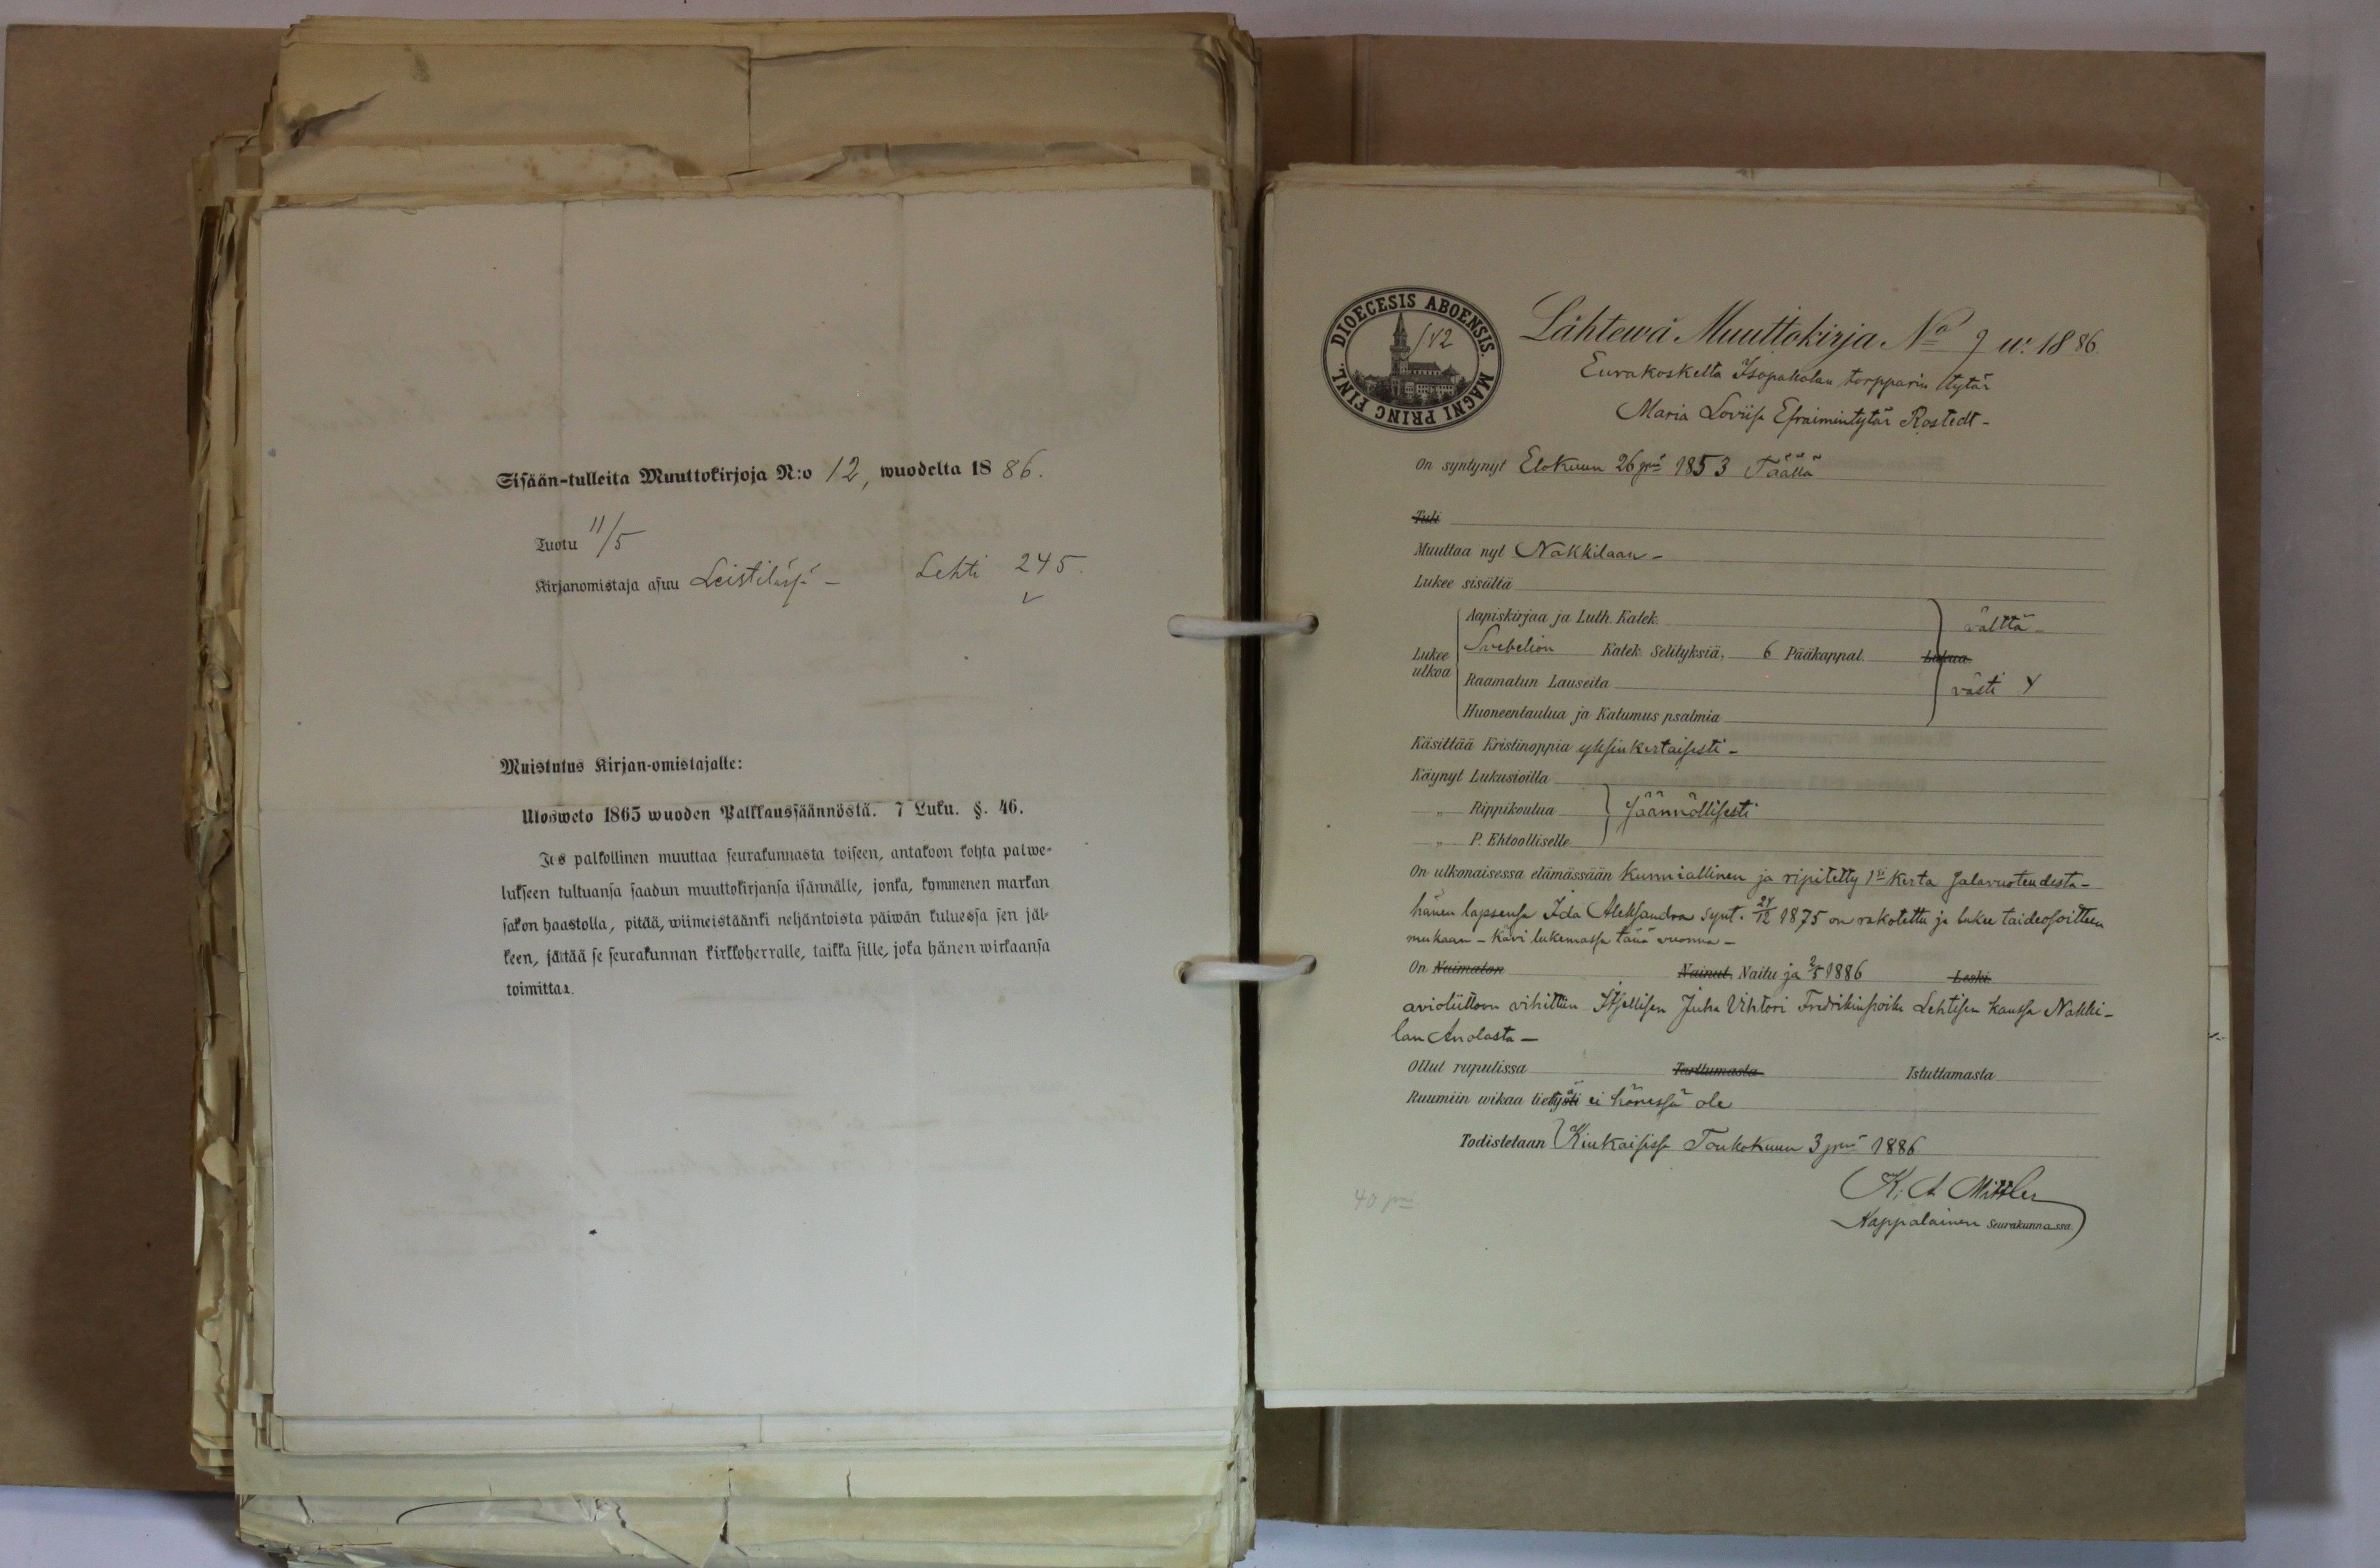 Sisään-tulleita Muuttokirjoja N:o 12, wuodelta 1886.
Tuotu 11/5
Kirjanomistaja asuu Leistilässä – Lehti 245.
Muistutus Kirjan-omistajalle:
Ulosweto 1865 wuoden Palkkaussäännöstä. 7 Luku. §. 46.
Jos palkollinen muuttaa seurakunnasta toiseen, antakoon kohta palwe-
lukseen tultuansa saadun muuttokirjansa isännälle, jonka, kymmenen markan
sakon haastolla, pitää, wiimeistäänki neljäntoista päiwän kuluessa sen jäl-
keen, jättää se seurakunnan kirkkoherralle, taikka sille, joka hänen wirkaansa
toimittaa.
DIOECESIS ABOENSIS. MAGNI PRINC FINL.
12
Lähtewä Muuttokirja No 9 w. 1886.
Eurakoskelta Isopahalan torpparin tytär
Maria Loviisa Efraimintytär Rostedt –
On syntynyt Elokuun 26 pnä 1853 Täällä
Tuli
Muuttaa nyt Nakkilaan –
Lukee sisältä
Aapiskirjaa ja Luth. Katek. välttä –
Lukee ulkoa Svebelion Katek. Selityksiä, 6 Pääkappal. Lukua
Raamatun Lauseita västi
Huoneentaulua ja Katumus psalmia
Käsittää Kristinoppia yksinkertaisesti –
Käynyt Lukusioilla
„ Rippikoulua Säännöllisesti
„ P. Ehtoolliselle
On ulkonaisessa elämässään kunniallinen ja ripitetty 1si kerta salavuoteudesta –
hänen lapsensa Ida Aleksandra synt. 24/12 1875 on rokotettu ja lukee taideosoitteen
mukaan – Kävi lukemassa tänä vuonna –
On Naimaton Nainut, Naitu ja 2/5 1886 Leski
avioliittoon vihittiin Itsellisen Juha Vihtori Fredrikinpoika Lehtisen kanssa Nakki-
lan Anolasta –
Ollut rupulissa Tarttumasta Istuttamasta
Ruumiin wikaa tiettyä ei hänessä ole
Todistetaan Kiukaisissa Toukokuun 3 pnä 1886
K. A. Mittler
Kappalainen Seurakunnassa.
40 pni